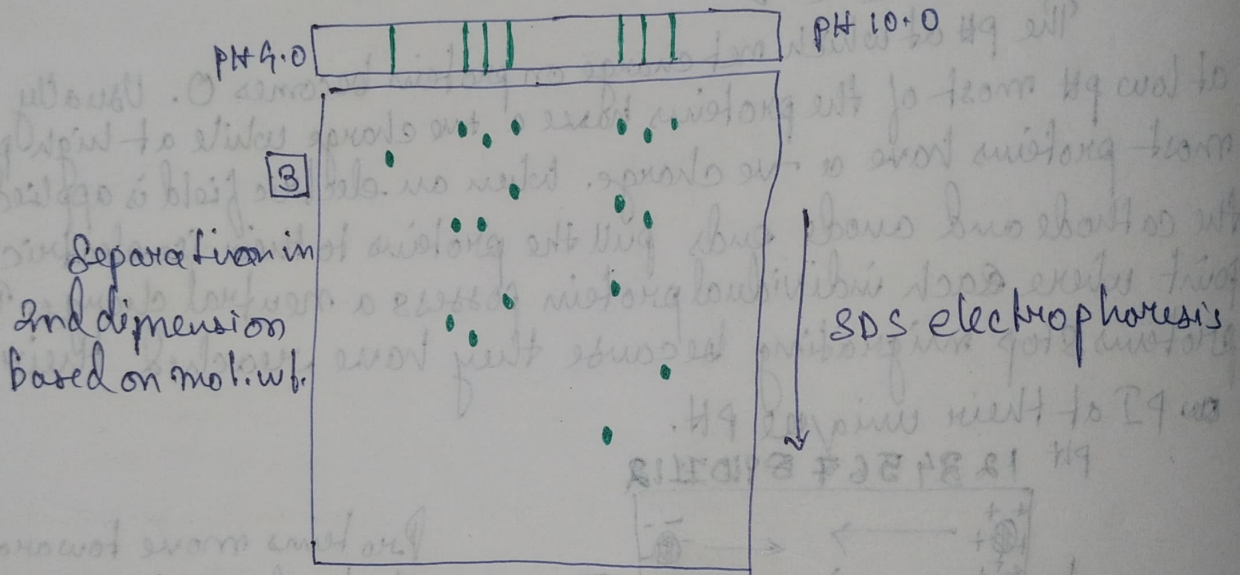 PH 4.0
PH 10.0
3
Separation in
2nd dimension
based on mol. wt.
SDS electrophoresis